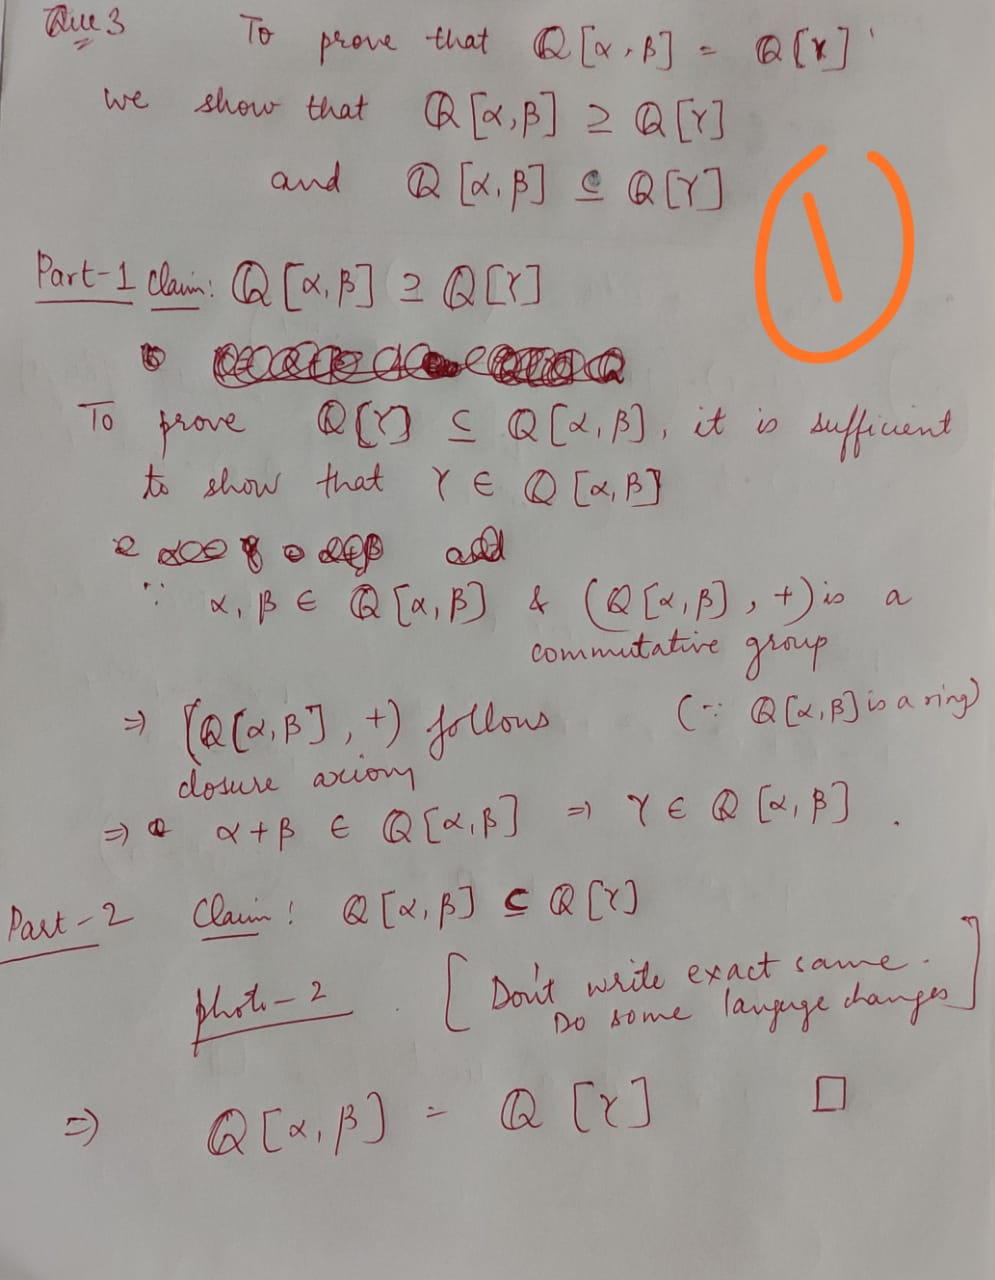 Que 3 To prove that ℚ[α, β] = ℚ[γ]
we show that ℚ[α, β] ⊇ ℚ[γ]
and ℚ[α, β] ⊆ ℚ[γ]
1
Part-1 Claim: ℚ[α, β] ⊇ ℚ[γ]
To prove ℚ[γ] ⊆ ℚ[α, β], it is sufficient
to show that γ ∈ ℚ[α, β]
∵ α, β ∈ ℚ[α, β] & (ℚ[α, β], +) is a
commutative group
⇒ (ℚ[α, β], +) follows (∵ ℚ[α, β] is a ring)
closure axiom
⇒ α+β ∈ ℚ[α, β] ⇒ γ ∈ ℚ[α, β].
Part-2 Claim: ℚ[α, β] ⊆ ℚ[γ]
photo-2. [Don't write exact same.
Do some languge changes]
⇒ ℚ[α, β] = ℚ[γ] □